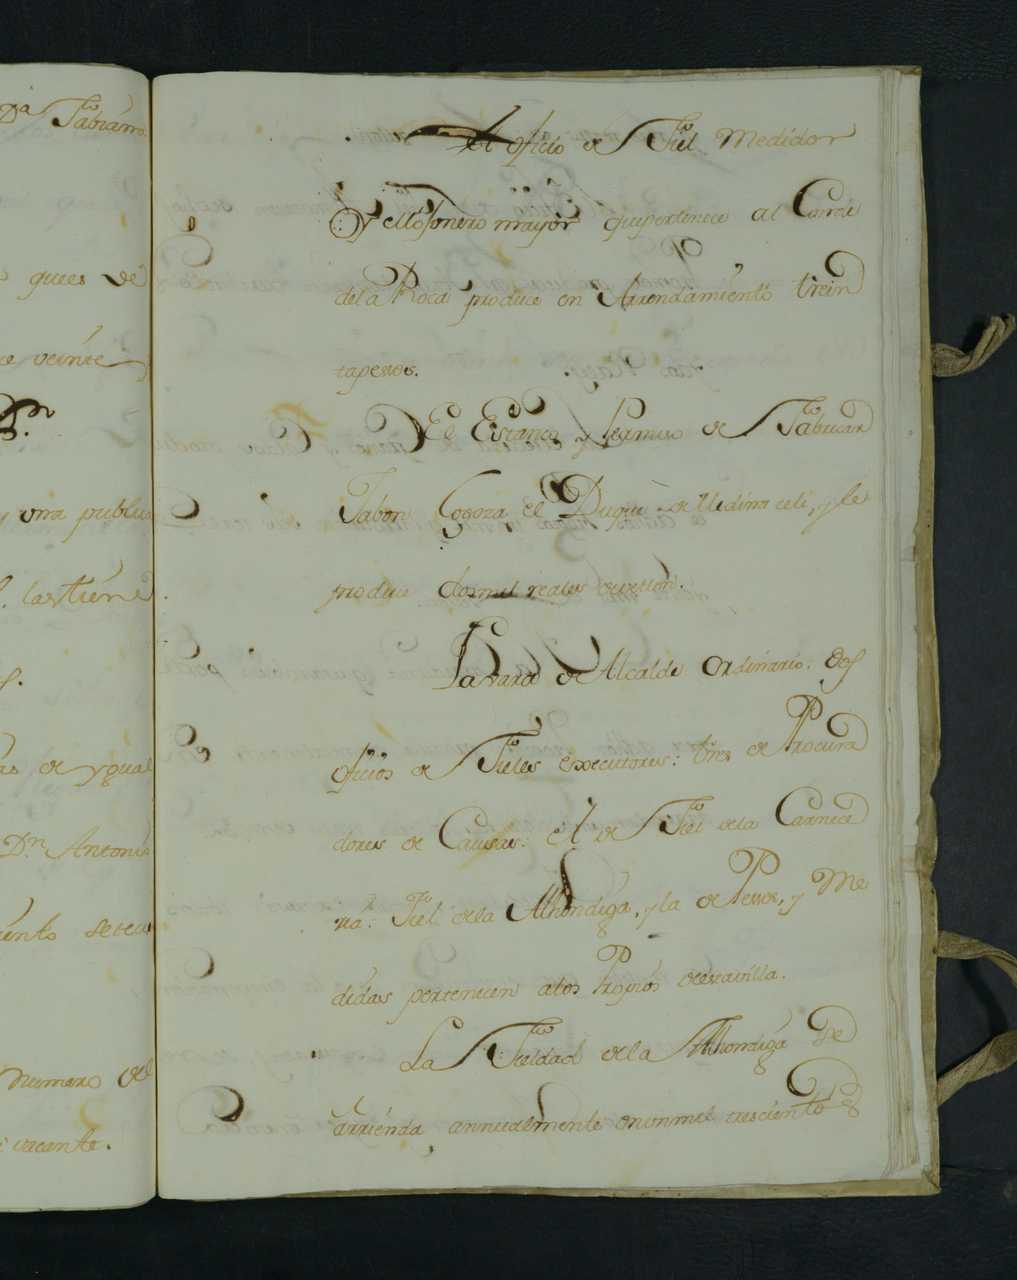 Dª Fabiana
que es de
ce veinte
y una publica
las tiene
as de ygual
Dn. Antoni
iento setecı
numero del
vacante.
El oficio de Fiel Medidor
Y Mojonero mayor que pertenece al Conde
dela Roca produce en Arrendamiento trein
tapesos.
El Estanco, y Permiso de Fabricar
Jabon Logoza el Duque de Medina celi, y le
produce dosmil reales de vellon.
La vara de Alcalde Ordinario: dos
oficios de Fieles executores: tres de Procura
dores de Causas: el de Fiel dela Carnece
ria: Fiel dela Alhondiga, y la de Pesos, y Me
didas pertenecen alos Propios deesta villa.
La Fieldad dela Alhondiga se
arrienda annualmente en un mil trescientos